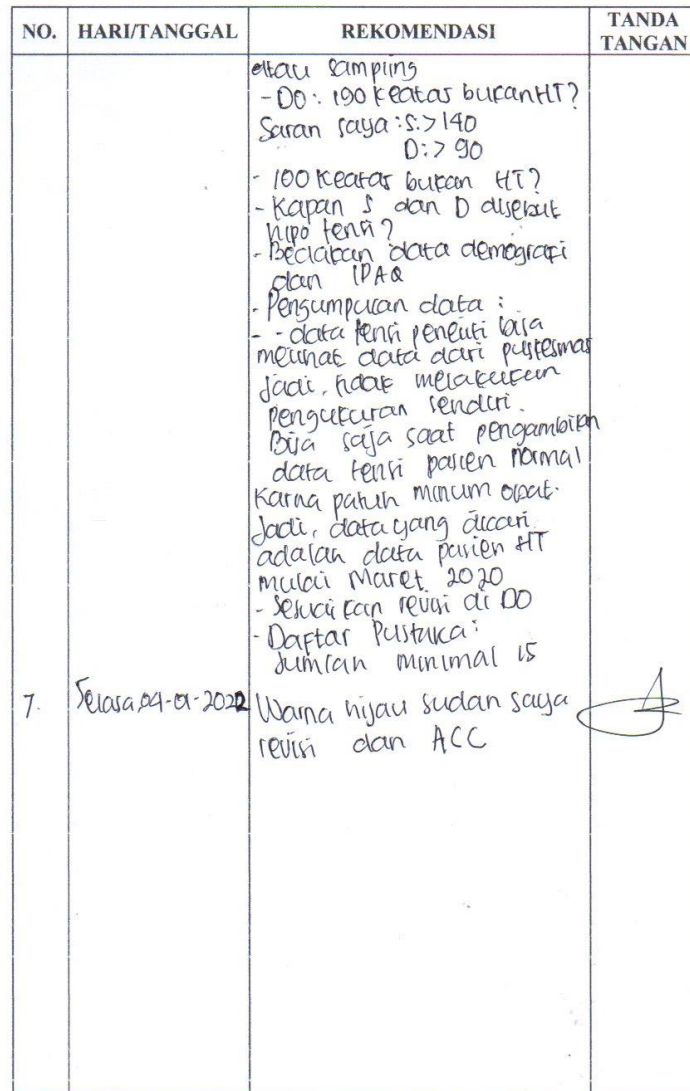 NO. HARI/TANGGAL REKOMENDASI TANDA TANGAN
atau samping
- DO: 190 keatas bukan HT?
Saran saya: S: > 140
D: > 90
- 100 keatas bukan HT?
- Kapan S dan D disebut
hipo tensi?
- Bedakan data demografi
dan IPAQ
- Pengumpulan data :
- - data tensi peneliti bisa
melihat data dari puskesmas
Jadi, tidak melakukan
pengukuran sendiri.
Bisa saja saat pengambilan
data tensi pasien normal
karna patuh minum obat.
Jadi, data yang dicari
adalah data pasien HT
mulai Maret 2020
- Sesuaikan revisi di DO
- Daftar Pustaka:
Jumlah minimal 15
7. Selasa, 04-01-2022 Warna hijau sudah saya
revisi dan ACC